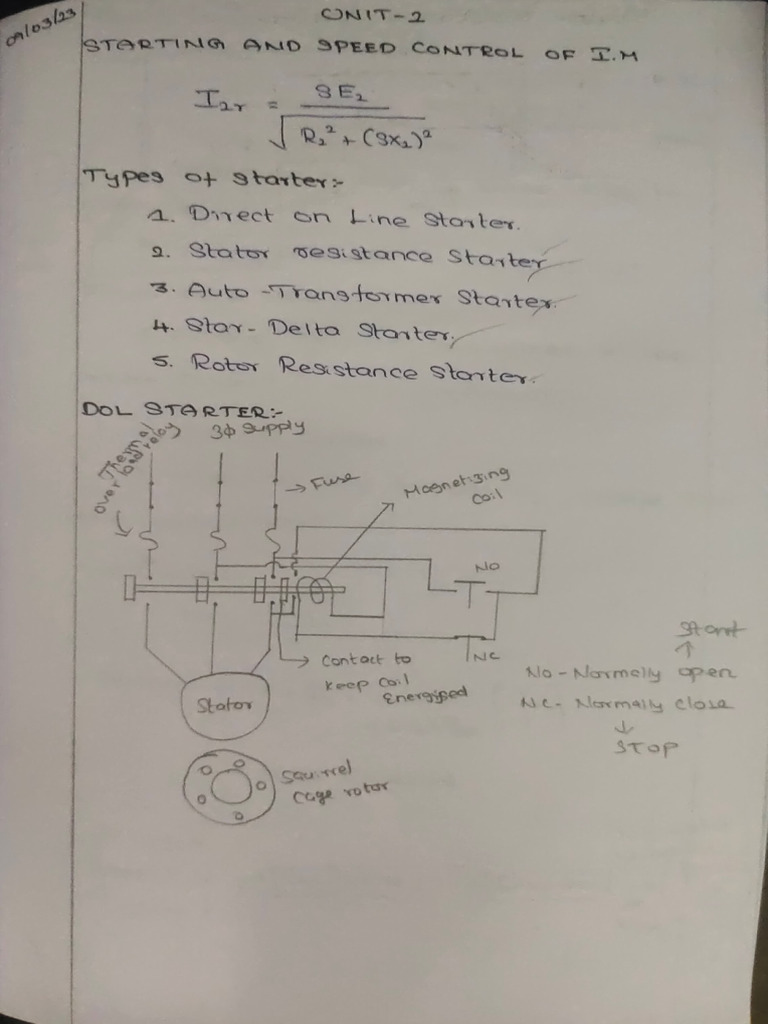 09/03/23
UNIT-2
STARTING AND SPEED CONTROL OF I.M
I2r = SE2 / √R2² + (SX2)²
Types of starter:-
1. Direct on Line Starter.
2. Stator resistance Starter
3. Auto-Transformer Starter.
4. Star-Delta Starter.
5. Rotor Resistance Starter.
DOL STARTER:-
Thermal
over load relay
3Φ supply
→ Fuse
Magnetizing
coil
NO
NC
Contact to
keep coil
Energised
Stator
Start
↑
No-Normally open
NC- Normally close
↓
STOP
Squirrel
cage rotor